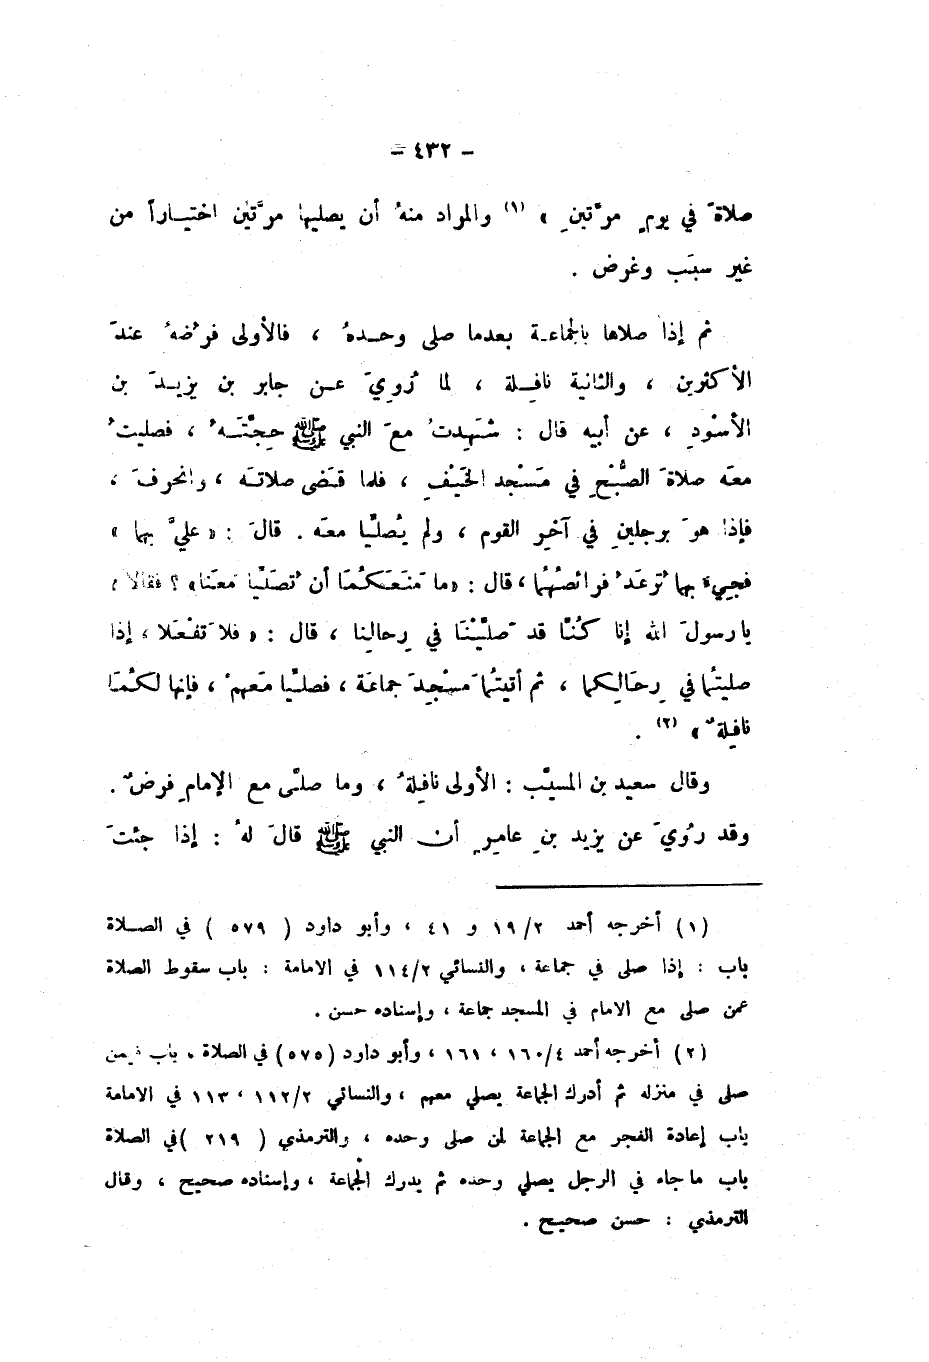 - ٤٣٢ -
صلاةَ في يومٍ مرَّتينِ » (١) والمراد منهُ أن يصليها مرَّتين اختياراً من
غير سبَب وغرض .
ثم إذا صلاها بالجماعة بعدما صلى وحدهُ ، فالأولى فرْضهُ عندَ
الأكثرين ، والثانية نافلة ، لما رُويَ عن جابر بن يزيدَ بن
الأسْودِ ، عن أبيه قال : شَهِدتُ معَ النبي ﷺ حِجَّتَهُ ، فصليتُ
معَه صلاةَ الصُّبْحِ في مَسْجد الخَيْفِ ، فلما قضَى صلاتَه ، وانحرفَ ،
فإذا هوَ برجلينِ في آخرِ القوم ، ولم يُصلِّيا معَه . قالَ : « عليَّ بهما »
فجيءَ بهما تُرعَدُ فرائصُهُما ، قال : «ما مَنعَكُمَا أن تُصَلِّيَا مَعَنا» ؟ فقالا :
يا رسولَ الله إنا كُنَّا قد صَلَّيْنَا في رِحالِنا ، قال : « فلا تَفْعَلا ، إذا
صليتُما في رِحَالِكما ، ثم أتيتُما مَسْجِدَ جماعَة ، فصلِّيا مَعهمْ ، فإنها لكُمَا
نافِلةٌ » (٢) .
وقال سعيد بن المسيَّب : الأولى نافِلةٌ ، وما صلَّى مع الإمامِ فرضٌ .
وقد رُوِيَ عن يزيد بنِ عامِرٍ أن النبي ﷺ قالَ لهُ : إذا جئتَ
(١) أخرجه أحمد ١٩/٢ و ٤١ ، وأبو داود ( ٥٧٩ ) في الصلاة
باب : إذا صلى في جماعة ، والنسائي ١١٤/٢ في الامامة : باب سقوط الصلاة
عمن صلى مع الامام في المسجد جماعة ، وإسناده حسن .
(٢) أخرجه أحمد ١٦٠/٤ ، ١٦١ ، وأبو داود (٥٧٥) في الصلاة ، باب فيمن
صلى في منزله ثم أدرك الجماعة يصلي معهم ، والنسائي ١١٢/٢ ، ١١٣ في الامامة
باب إعادة الفجر مع الجماعة لمن صلى وحده ، والترمذي ( ٢١٩ )في الصلاة
باب ما جاء في الرجل يصلي وحده ثم يدرك الجماعة ، وإسناده صحيح ، وقال
الترمذي : حسن صحيح .